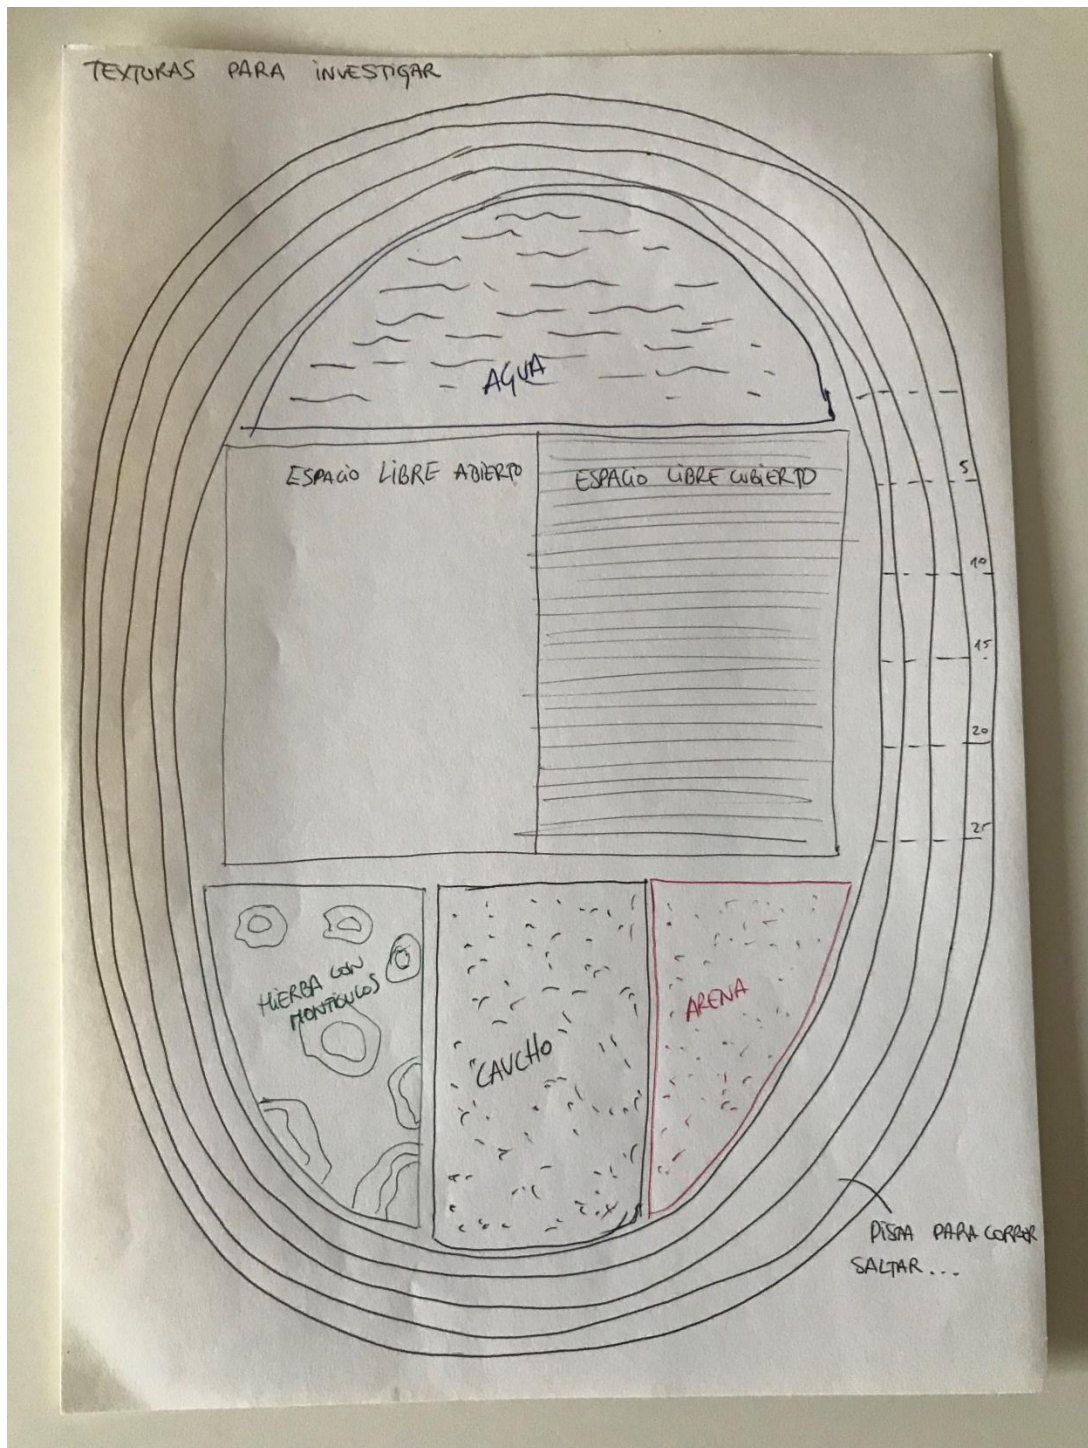 TEXTURAS PARA INVESTIGAR
AGUA
ESPACIO LIBRE ABIERTO
ESPACIO LIBRE CUBIERTO
5
10
15
20
25
HIERBA CON
MONTÍCULOS
CAUCHO
ARENA
PISTA PARA CORRER
SALTAR...